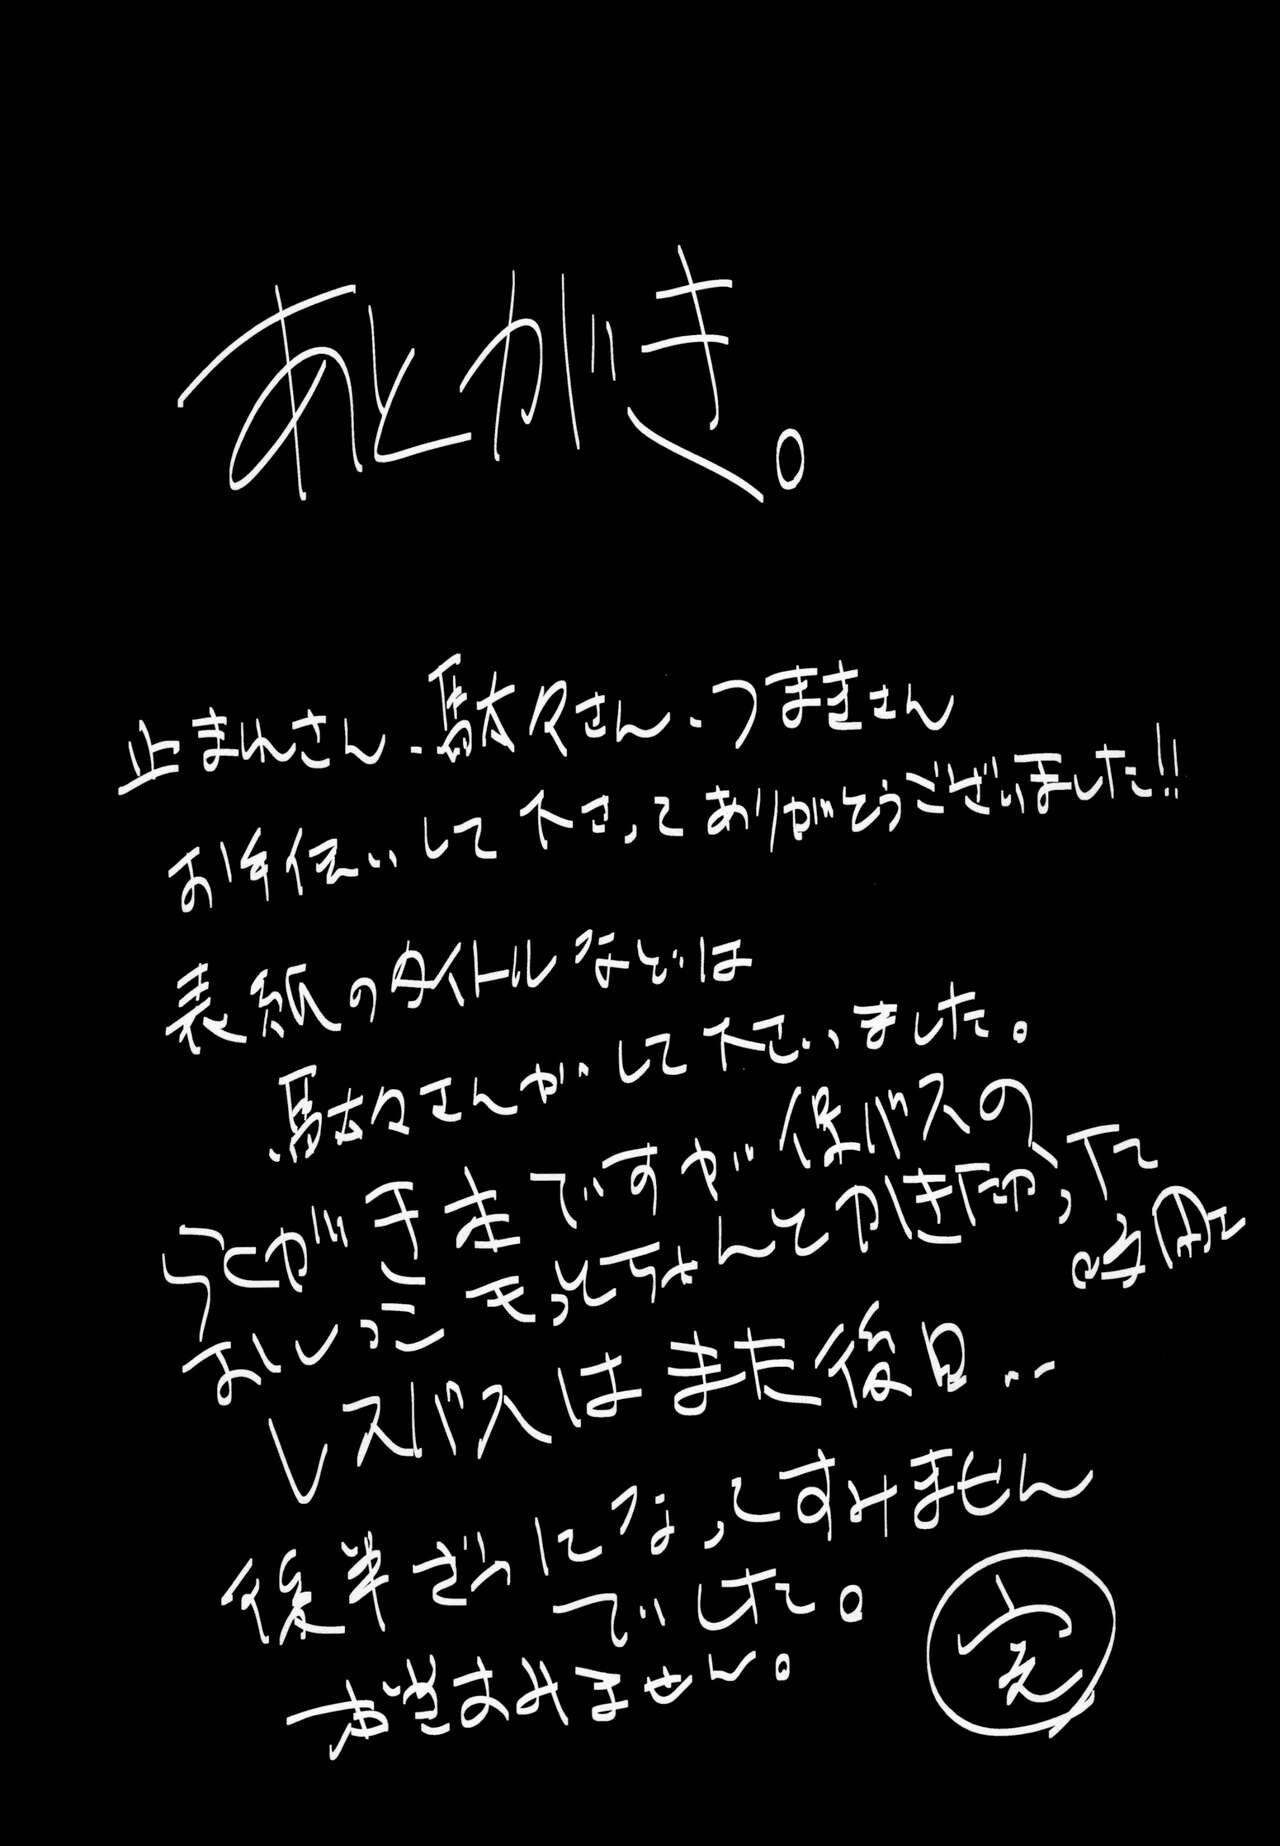 あとがき。
止まれさん、駄々さん、つまきさん
お手伝いして下さってありがとうございました!!
表紙のタイトルなどは
駄々さんがして下さいました。
らくがきまですが保バスの
おしっこもっとちゃんとかきたかった
時間に
レズバスはまた後日..
後半ざつになってすみません
でした。
すみません。
完